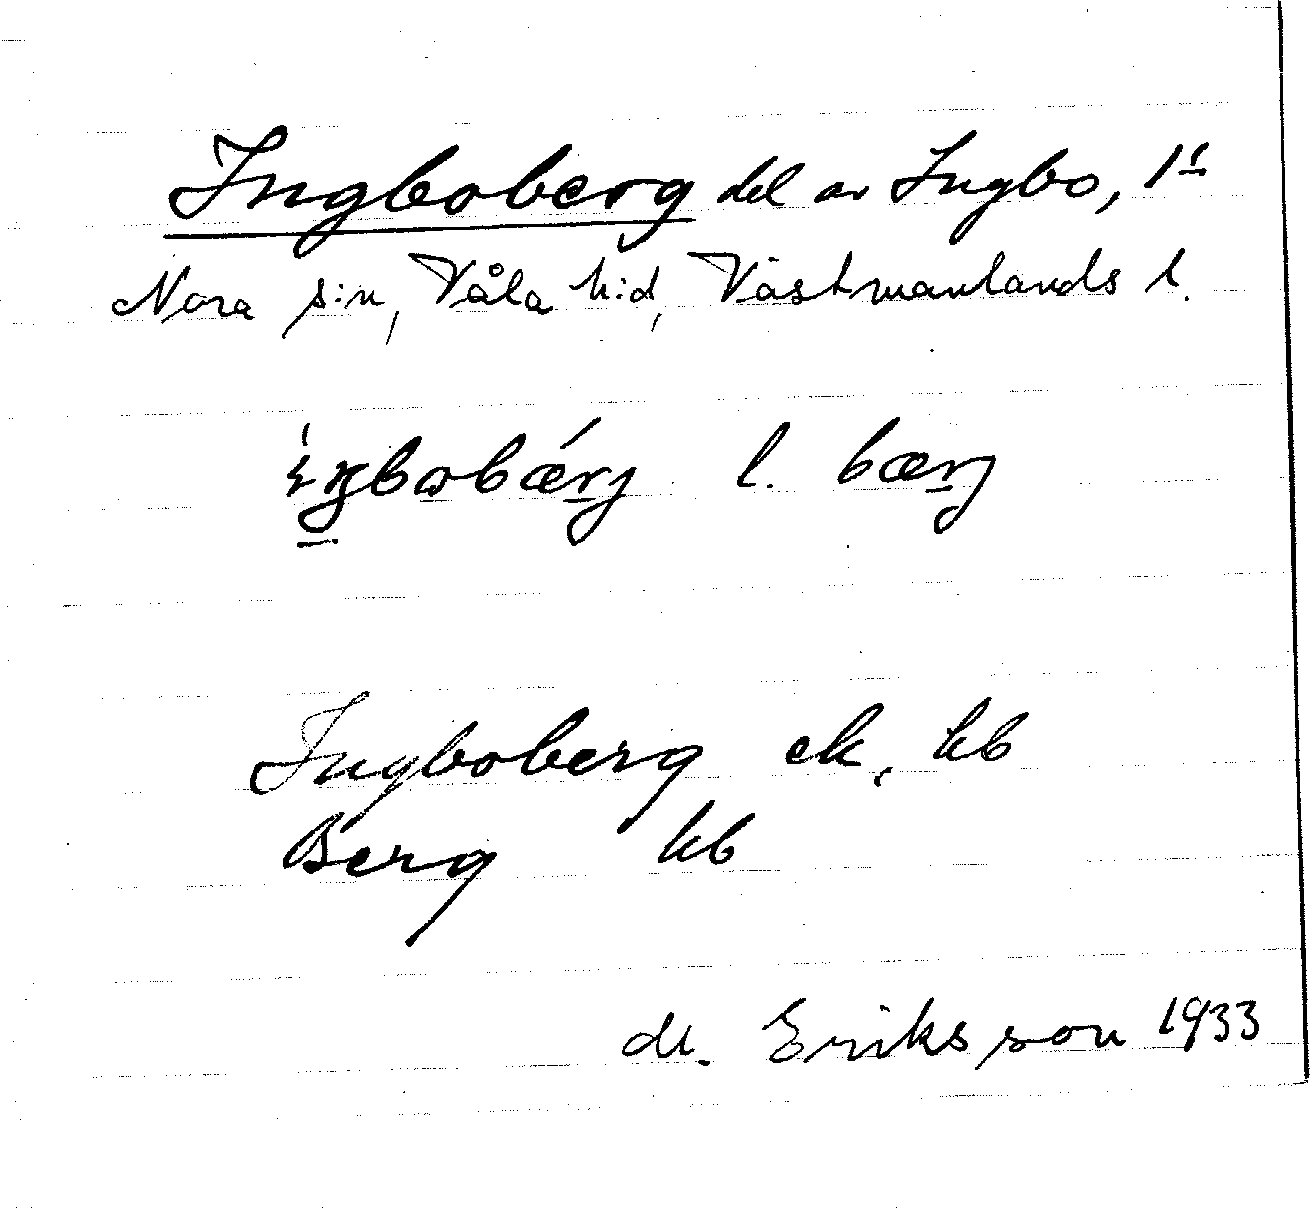 Ingboberg del av Ingbo, 1/4
Nora s:n, Våla h:d, Västmanlands l.
l. bærj
Ingboberg ek, kb
Berg kb
M. Eriksson 1933